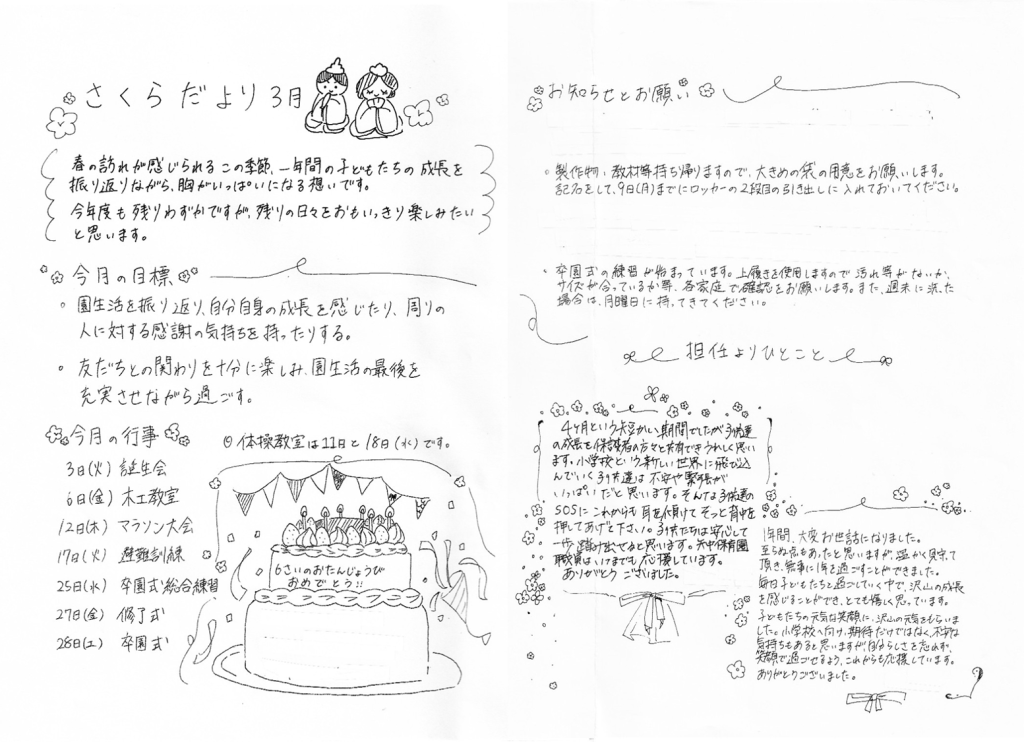 さくらだより 3月
春の訪れが感じられるこの季節、一年間の子どもたちの成長を
振り返りながら、胸がいっぱいになる想いです。
今年度も残りわずかですが、残りの日々をおもいっきり楽しみたい
と思います。
今月の目標
・園生活を振り返り、自分自身の成長を感じたり、周りの
人に対する感謝の気持ちを持ったりする。
・友だちとの関わりを十分に楽しみ、園生活の最後を
充実させながら過ごす。
今月の行事
◎体操教室は11日と18日(水)です。
3日(火) 誕生会
6日(金) 木工教室
12日(木) マラソン大会
17日(火) 避難訓練
25日(水) 卒園式総合練習
27日(金) 修了式
28日(土) 卒園式
6さいのおたんじょうび
おめでとう!!
お知らせとお願い
・製作物、教材等持ち帰りますので、大きめの袋の用意をお願いします。
記名をして、9日(月)までにロッカーの2段目の引き出しに入れておいてください。
・卒園式の練習が始まっています。上履きを使用しますので汚れ等がないか、
サイズが合っているか等、各家庭で確認をお願いします。また、週末に洗った
場合は、月曜日に持ってきてください。
担任よりひとこと
4ヶ月という短かい期間でしたが子供達
の成長を保護者の方々と共有できうれしく思い
ます。小学校という新しい世界に飛び込
んでいく子供達は不安や緊張が
いっぱいだと思います。そんな子供達の
SOSにこれからも耳を傾けてそっと背中を
押してあげて下さい。子供たちは安心して
一歩踏け出せると思います。矢中保育園
職員はいつまでも応援しています。
ありがとうございました。
1年間、大変お世話になりました。
至らぬ点もあったと思いますが、温かく見守って
頂き、無事に1年を過ごすことができました。
毎日子どもたちと過ごしていく中で、沢山の成長
を感じることができ、とても嬉しく思っています。
子どもたちの元気な笑顔に、沢山の元気をもらいま
した。小学校へ向け、期待だけではなく、不安な
気持ちもあると思いますが、自分らしさを忘れず、
笑顔で過ごせるよう、これからも応援しています。
ありがとうございました。